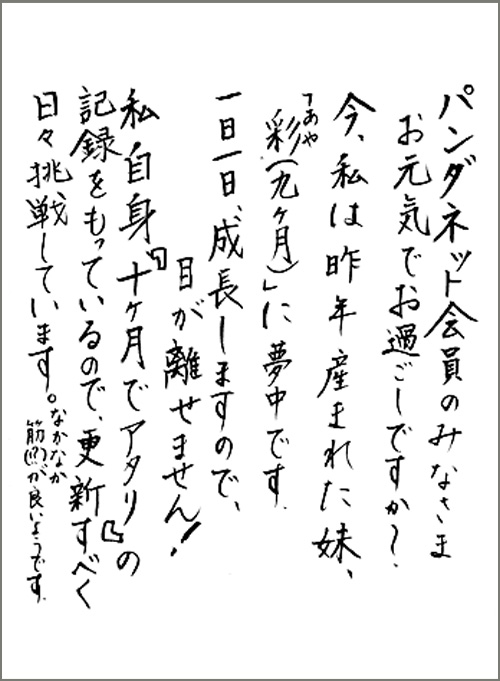 パンダネット会員のみなさま
お元気でお過ごしですか〜.
今、私は昨年産まれた妹、
「彩(九ヶ月)」に夢中です.
あや
一日一日、成長しますので、
目が離せません!
私自身『十ヶ月でアタリ』の
記録をもっているので、更新すべく
日々挑戦しています。なかなか
筋(?)が良いようです.